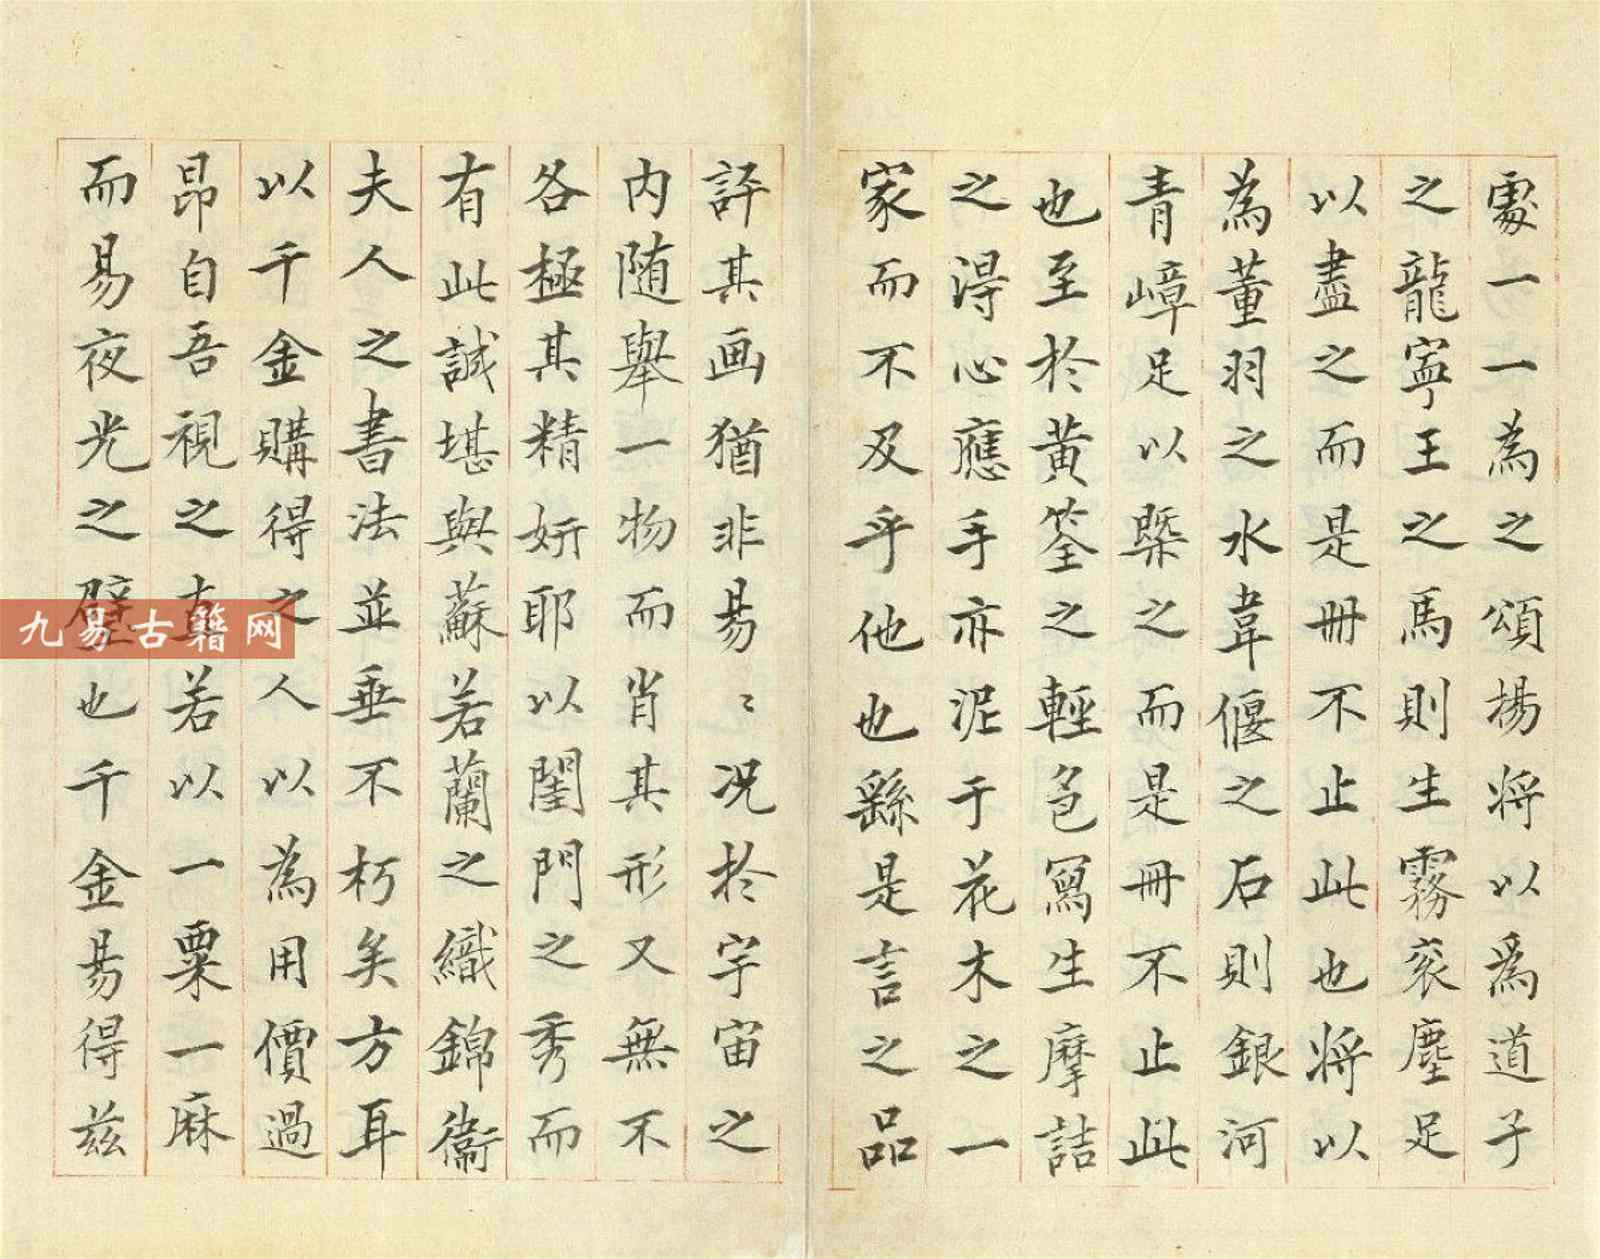 處一一為之頌揚将以爲道子
之龍寧王之馬則生霧衮塵足
以盡之而是冊不止此也将以
為董羽之水韋偃之石則銀河
青嶂足以槩之而是冊不止此
也至於黄筌之輕色寫生摩詰
之淂心應手亦泥于花木之一
家而不及乎他也繇是言之品
評其画猶非易〻况於宇宙之
内随舉一物而肖其形又無不
各極其精妍耶以閨門之秀而
有此誠堪與蘇若蘭之織錦衞
夫人之書法並垂不朽矣方耳
以千金購得之人以為用價過
昂自吾視之直若以一粟一麻
而易夜光之璧也千金易得兹
九易古籍网